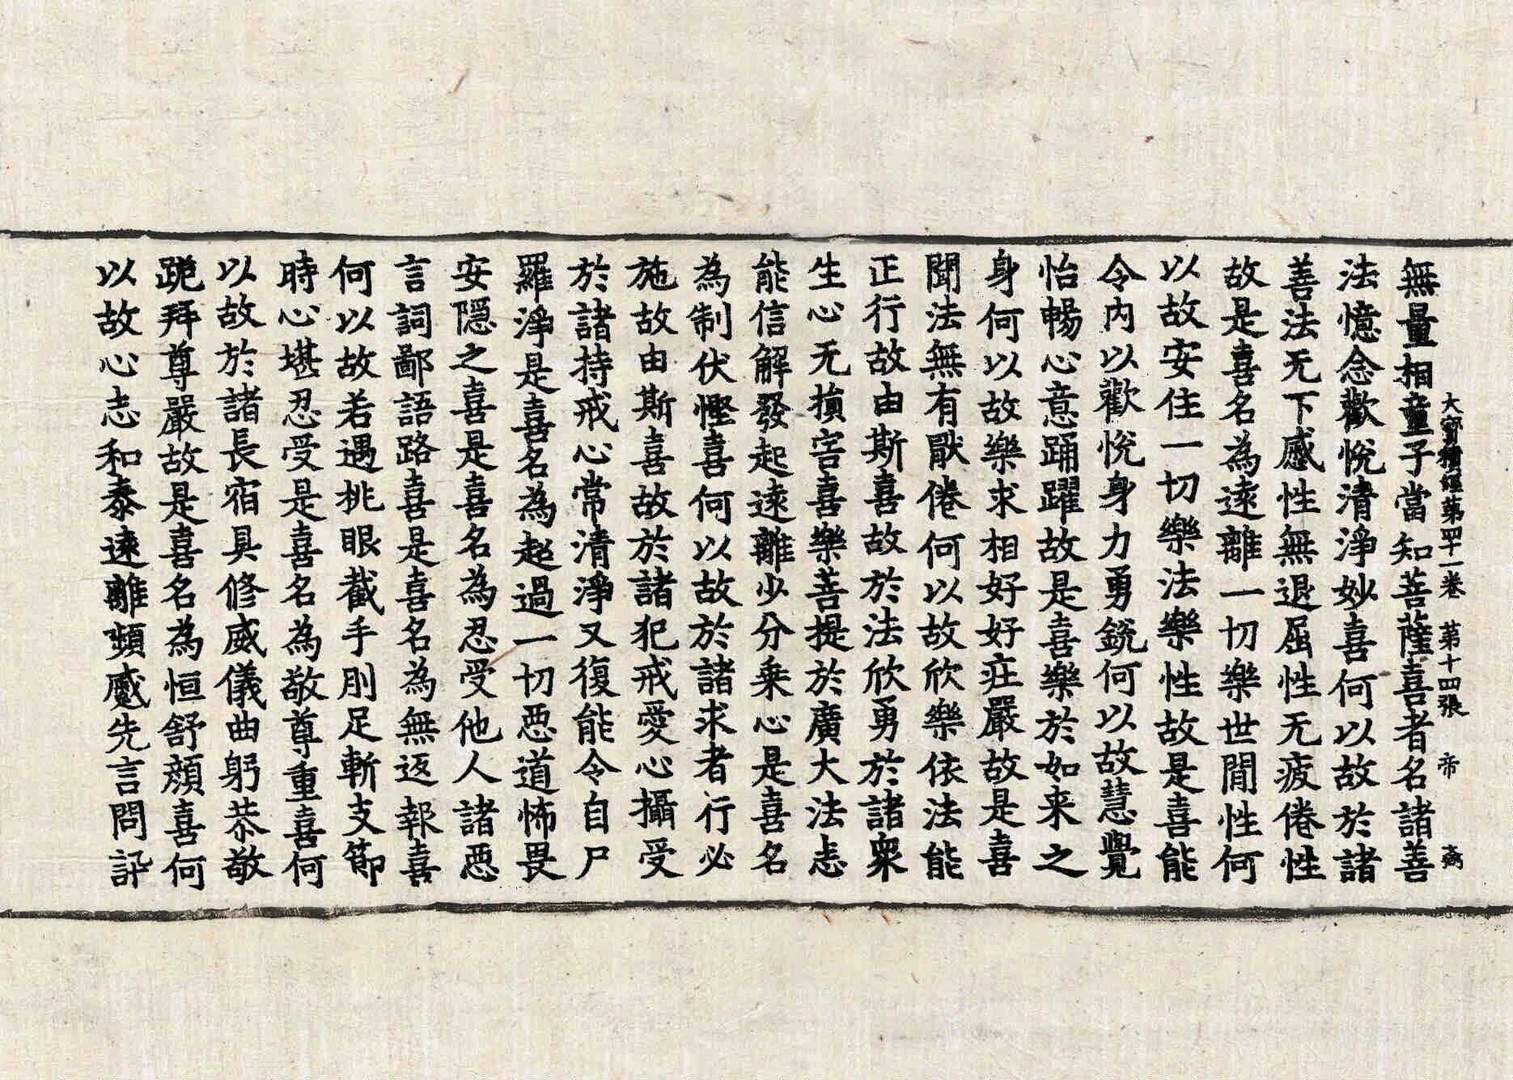 大寶積經第四十一卷　第十四張　帝
無量相童子當知菩薩喜者名諸善
法憶念歡悅清淨妙喜何以故於諸
善法无下慼性無退屈性无疲倦性
故是喜名為遠離一切樂世間性何
以故安住一切樂法樂性故是喜能
令內以歡悅身力勇銳何以故慧覺
怡暢心意踊躍故是喜樂於如来之
身何以故樂求相好好庄嚴故是喜
聞法無有猒倦何以故欣樂依法能
正行故由斯喜故於法欣勇於諸衆
生心无損害喜樂菩提於廣大法志
能信解發起遠離少分乗心是喜名
為制伏慳喜何以故於諸求者行必
施故由斯喜故於諸犯戒愛心攝受
於諸持戒心常清淨又復能令自尸
羅淨是喜名為超過一切惡道怖畏
安隱之喜是喜名為忍受他人諸惡
言詞鄙語路喜是喜名為無返報喜
何以故若遇挑眼截手刖足斬支節
時心堪忍受是喜名為敬尊重喜何
以故於諸長宿具修威儀曲躬恭敬
跪拜尊嚴故是喜名為恒舒顔喜何
以故心志和泰遠離頻慼先言問訊